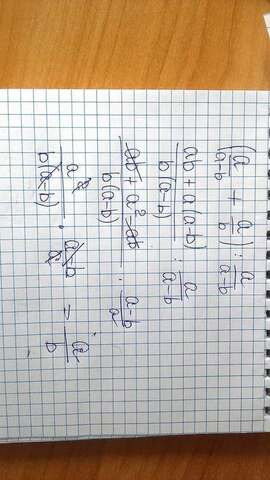 (a/(a-b) + a/b) : a/(a-b)
(ab + a(a-b))/(b(a-b)) : a/(a-b)
(ab + a² - ab)/(b(a-b)) · (a-b)/a
a²/(b(a-b)) · (a-b)/a = a/b